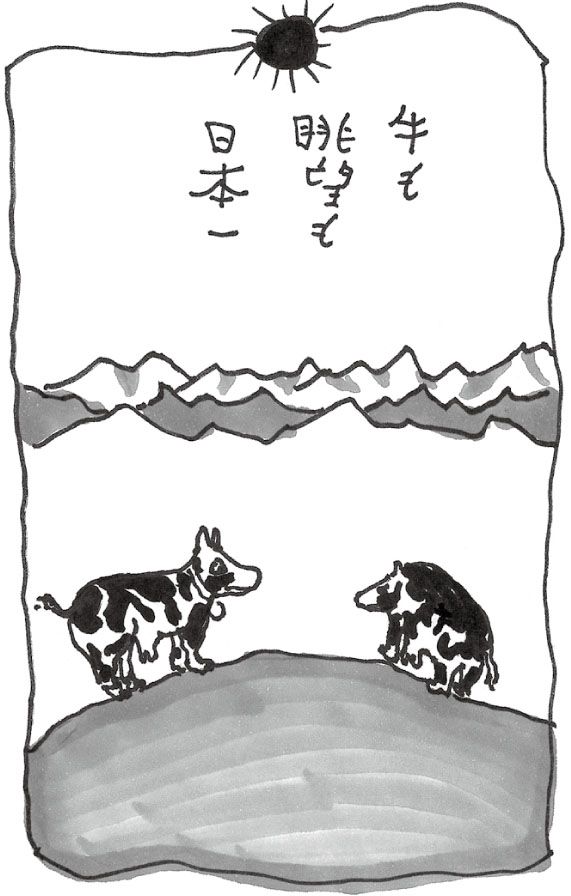 牛も
眺望も
日本一